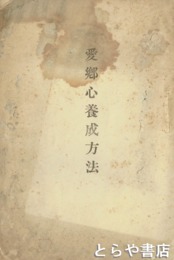 愛郷心養成方法
とらや書店